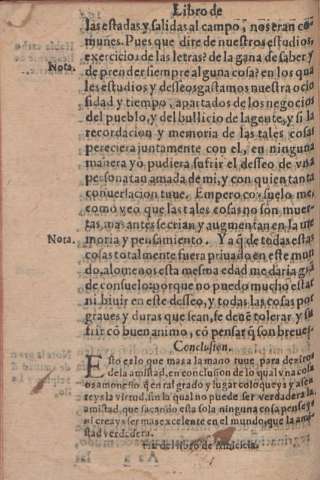 Libro de
las estadas y salidas al campo, nos eran co-
munes. Pues que dire de nuestros estudios,
exercicios de las letras? de la gana de saber y
Nota.
de prender siempre alguna cosa? en los qua
les estudios y desseos gastamos nuestra ocio
sidad y tiempo, apartados de los negocios
del pueblo, y del bullicio de la gente, y si la
recordacion y memoria de las tales cosas
pereciera juntamente con el, en ninguna
manera yo pudiera sufrir el desseo de vna
persona tan amada de mi, y con quien tanta
conuersacion tuue. Empero consuelo me,
como veo que las tales cosas no son muer-
tas, mas antes se crian y augmentan en la me
Nota.
moria y pensamiento. Ya q̃ de todas estas
cosas totalmente fuera priuado en este mun
do, alomenos esta mesma edad me daria grã
de consuelo: porque no puedo mucho estar
ni biuir en este desseo, y todas las cosas por
graues y duras que sean, se deuẽ tolerar y su
frir cõ buen animo, cõ pensar q̃ son breues.
Conclusion.
Esto es lo que mas a la mano tuue, para deziros
de la amistad, en conclusion de lo qual vna cosa
os amonesto, q̃ en tal grado y lugar coloqueys y assen
teys la virtud, sin la qual no puede ser verdadera la
amistad, que sacando esta sola ninguna cosa penseys
ni creays ser mas excelente en el mundo, que la ami-
stad verdadera.
Fin del libro de Amicicia.